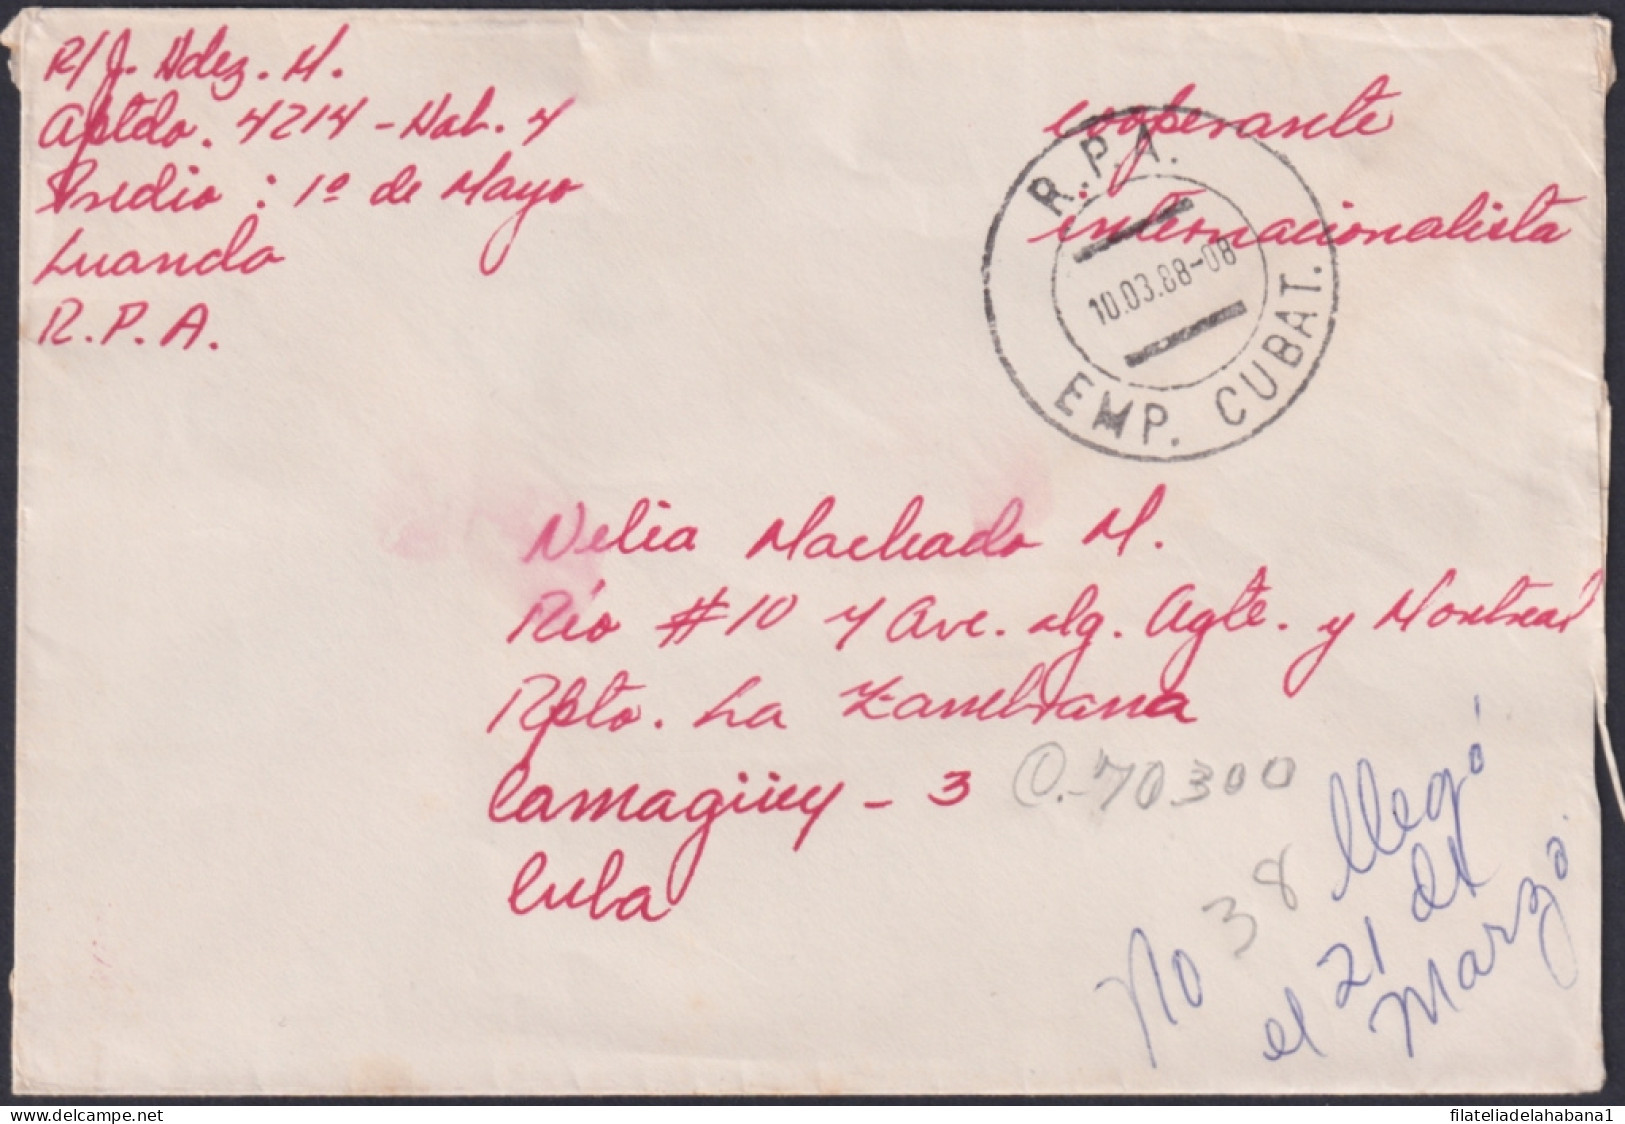 R/ J. Hdez. M.
Aptdo. 4214 - Hab. 4
Predio : 1º de Mayo
Luanda
R.P.A.
cooperante
internacionalista
R.P.A.
10.03.88-08
EMP. CUBAT.
Nelia Machado M.
Río #10 y Ave. Ig. Agte. y Montreal
Rpto. La Zambrana
Camagüey - 3 O.-70300
Cuba
No 38 llegó
el 21 de
Marzo.
delcampe.net
filateliadelahabana1